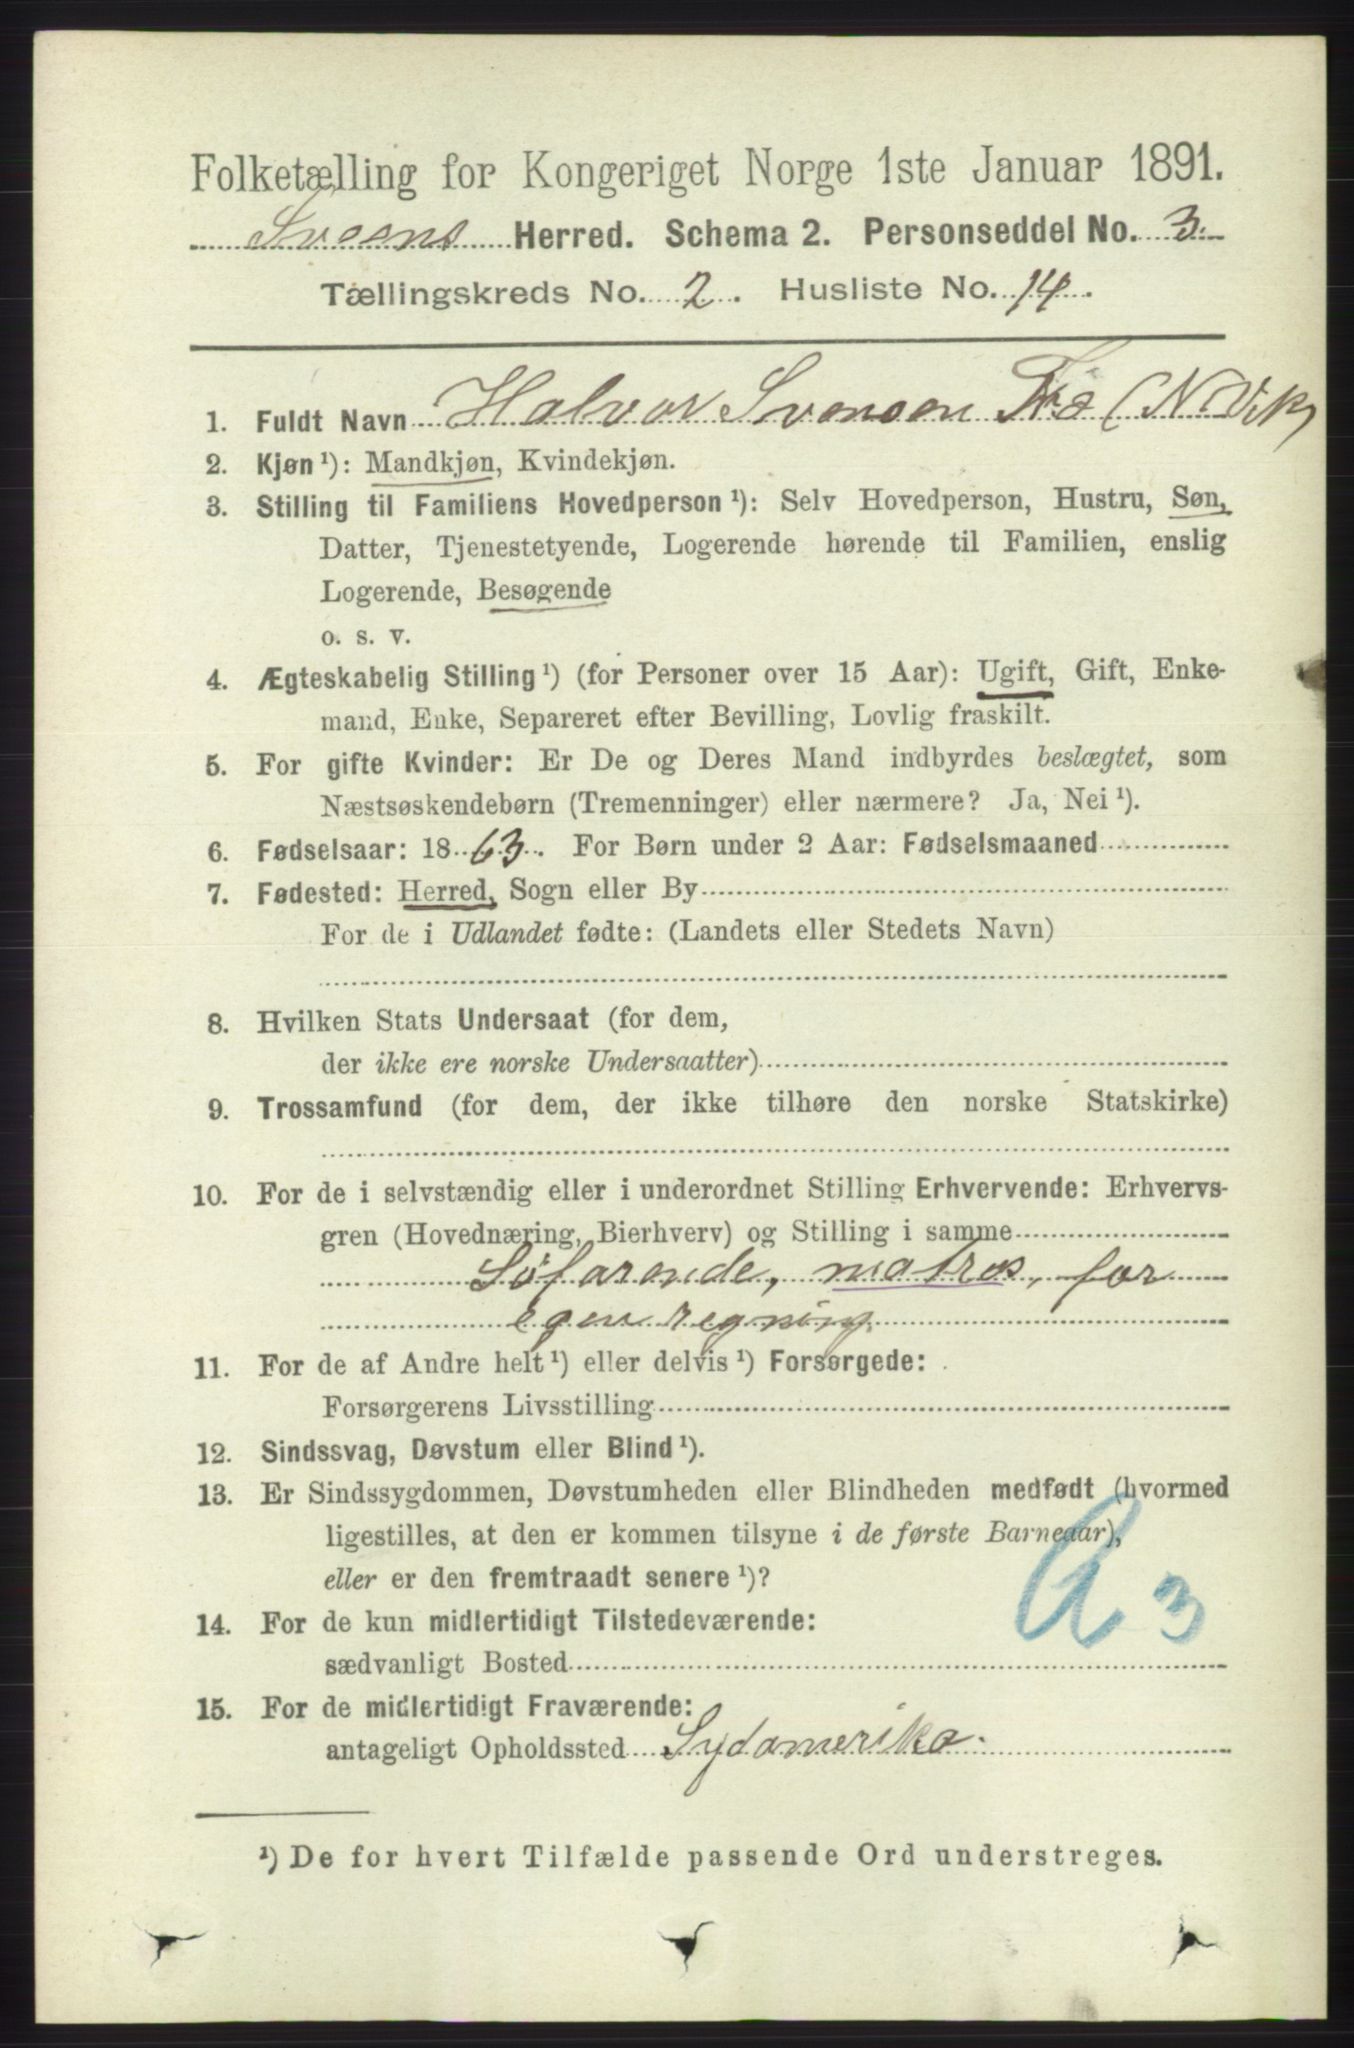 Folketælling for Kongeriget Norge 1ste Januar 1891.
Sveens Herred. Schema 2. Personseddel No. 3.
Tællingskreds No. 2. Husliste No. 14.
1. Fuldt Navn Halvor Svensen (N. Vik)
2. Kjøn ¹): Mandkjøn, Kvindekjøn.
3. Stilling til Familiens Hovedperson ¹): Selv Hovedperson, Hustru, Søn,
Datter, Tjenestetyende, Logerende hørende til Familien, enslig
Logerende, Besøgende
o. s. v.
4. Ægteskabelig Stilling ¹) (for Personer over 15 Aar): Ugift, Gift, Enke-
mand, Enke, Separeret efter Bevilling, Lovlig fraskilt.
5. For gifte Kvinder: Er De og Deres Mand indbyrdes beslægtet, som
Næstsøskendebørn (Tremenninger) eller nærmere? Ja, Nei ¹).
6. Fødselsaar: 1863. For Børn under 2 Aar: Fødselsmaaned
7. Fødested: Herred, Sogn eller By
For de i Udlandet fødte: (Landets eller Stedets Navn)
8. Hvilken Stats Undersaat (for dem,
der ikke ere norske Undersaatter)
9. Trossamfund (for dem, der ikke tilhøre den norske Statskirke)
10. For de i selvstændig eller i underordnet Stilling Erhvervende: Erhvervs-
gren (Hovednæring, Bierhverv) og Stilling i samme
Søfarende, matros, for
egen regning.
11. For de af Andre helt ¹) eller delvis ¹) Forsørgede:
Forsørgerens Livsstilling
12. Sindssvag, Døvstum eller Blind ¹).
13. Er Sindssygdommen, Døvstumheden eller Blindheden medfødt (hvormed
ligestilles, at den er kommen tilsyne i de første Barneaar),
eller er den fremtraadt senere ¹)?
A 3
14. For de kun midlertidigt Tilstedeværende:
sædvanligt Bosted
15. For de midlertidigt Fraværende:
antageligt Opholdssted Sydamerika.
¹) De for hvert Tilfælde passende Ord understreges.